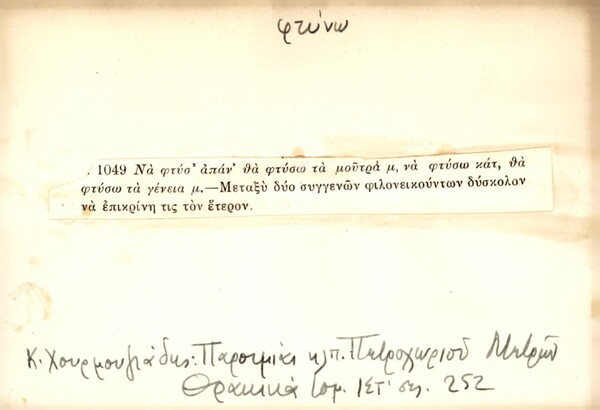 φτύνω
. 1049 Νὰ φτύσ' ἀπάν' θὰ φτύσω τὰ μοῦτρὰ μ, νὰ φτύσω κάτ, θὰ
φτύσω τὰ γένεια μ.—Μεταξὺ δύο συγγενῶν φιλονεικούντων δύσκολον
νὰ ἐπικρίνη τις τὸν ἕτερον.
Κ. Χουρμουζιάδης: Παροιμίαι κλπ. Πετροχωριοῦ Μετρῶν
Θρακικά τομ. ΙΣΤ' σελ. 252